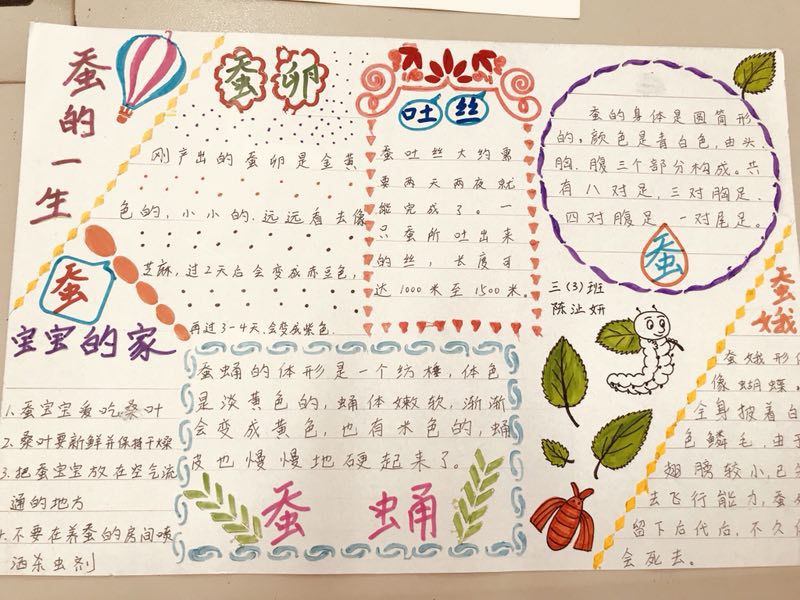 蚕的一生
蚕卵
刚产出的蚕卵是金黄
色的,小小的.远远看去像
芝麻,过2天后会变成赤豆色,
再过3-4天.会变紫色.
吐丝
蚕吐丝大约需
要两天两夜就
能完成了。一
只蚕所吐出来
的丝,长度可
达1000米至1500米。
蚕的身体是圆筒形
的。颜色是青白色,由头.
胸.腹三个部分构成。共
有八对足,三对胸足.
四对腹足.一对尾足。
蚕
三(3)班
陈沚妍
蚕
宝宝的家
1.蚕宝宝爱吃桑叶
2.桑叶要新鲜并保持干燥
3.把蚕宝宝放在空气流
通的地方
4.不要在养蚕的房间喷
洒杀虫剂
蚕蛹的体形是一个纺棰,体色
是淡黄色的,蛹体嫩软,渐渐
会变成黄色,也有米色的,蛹
皮也慢慢地硬起来了。
蚕 蛹
蚕娥
蚕娥形
像蝴蝶。
全身披着白
色鳞毛,由于
翅膀较小,已
去飞行能力,蚕
留下后代后,不久
会死去。